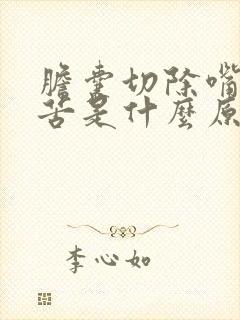 膽囊切除嘴
苦是什麼原
李心如